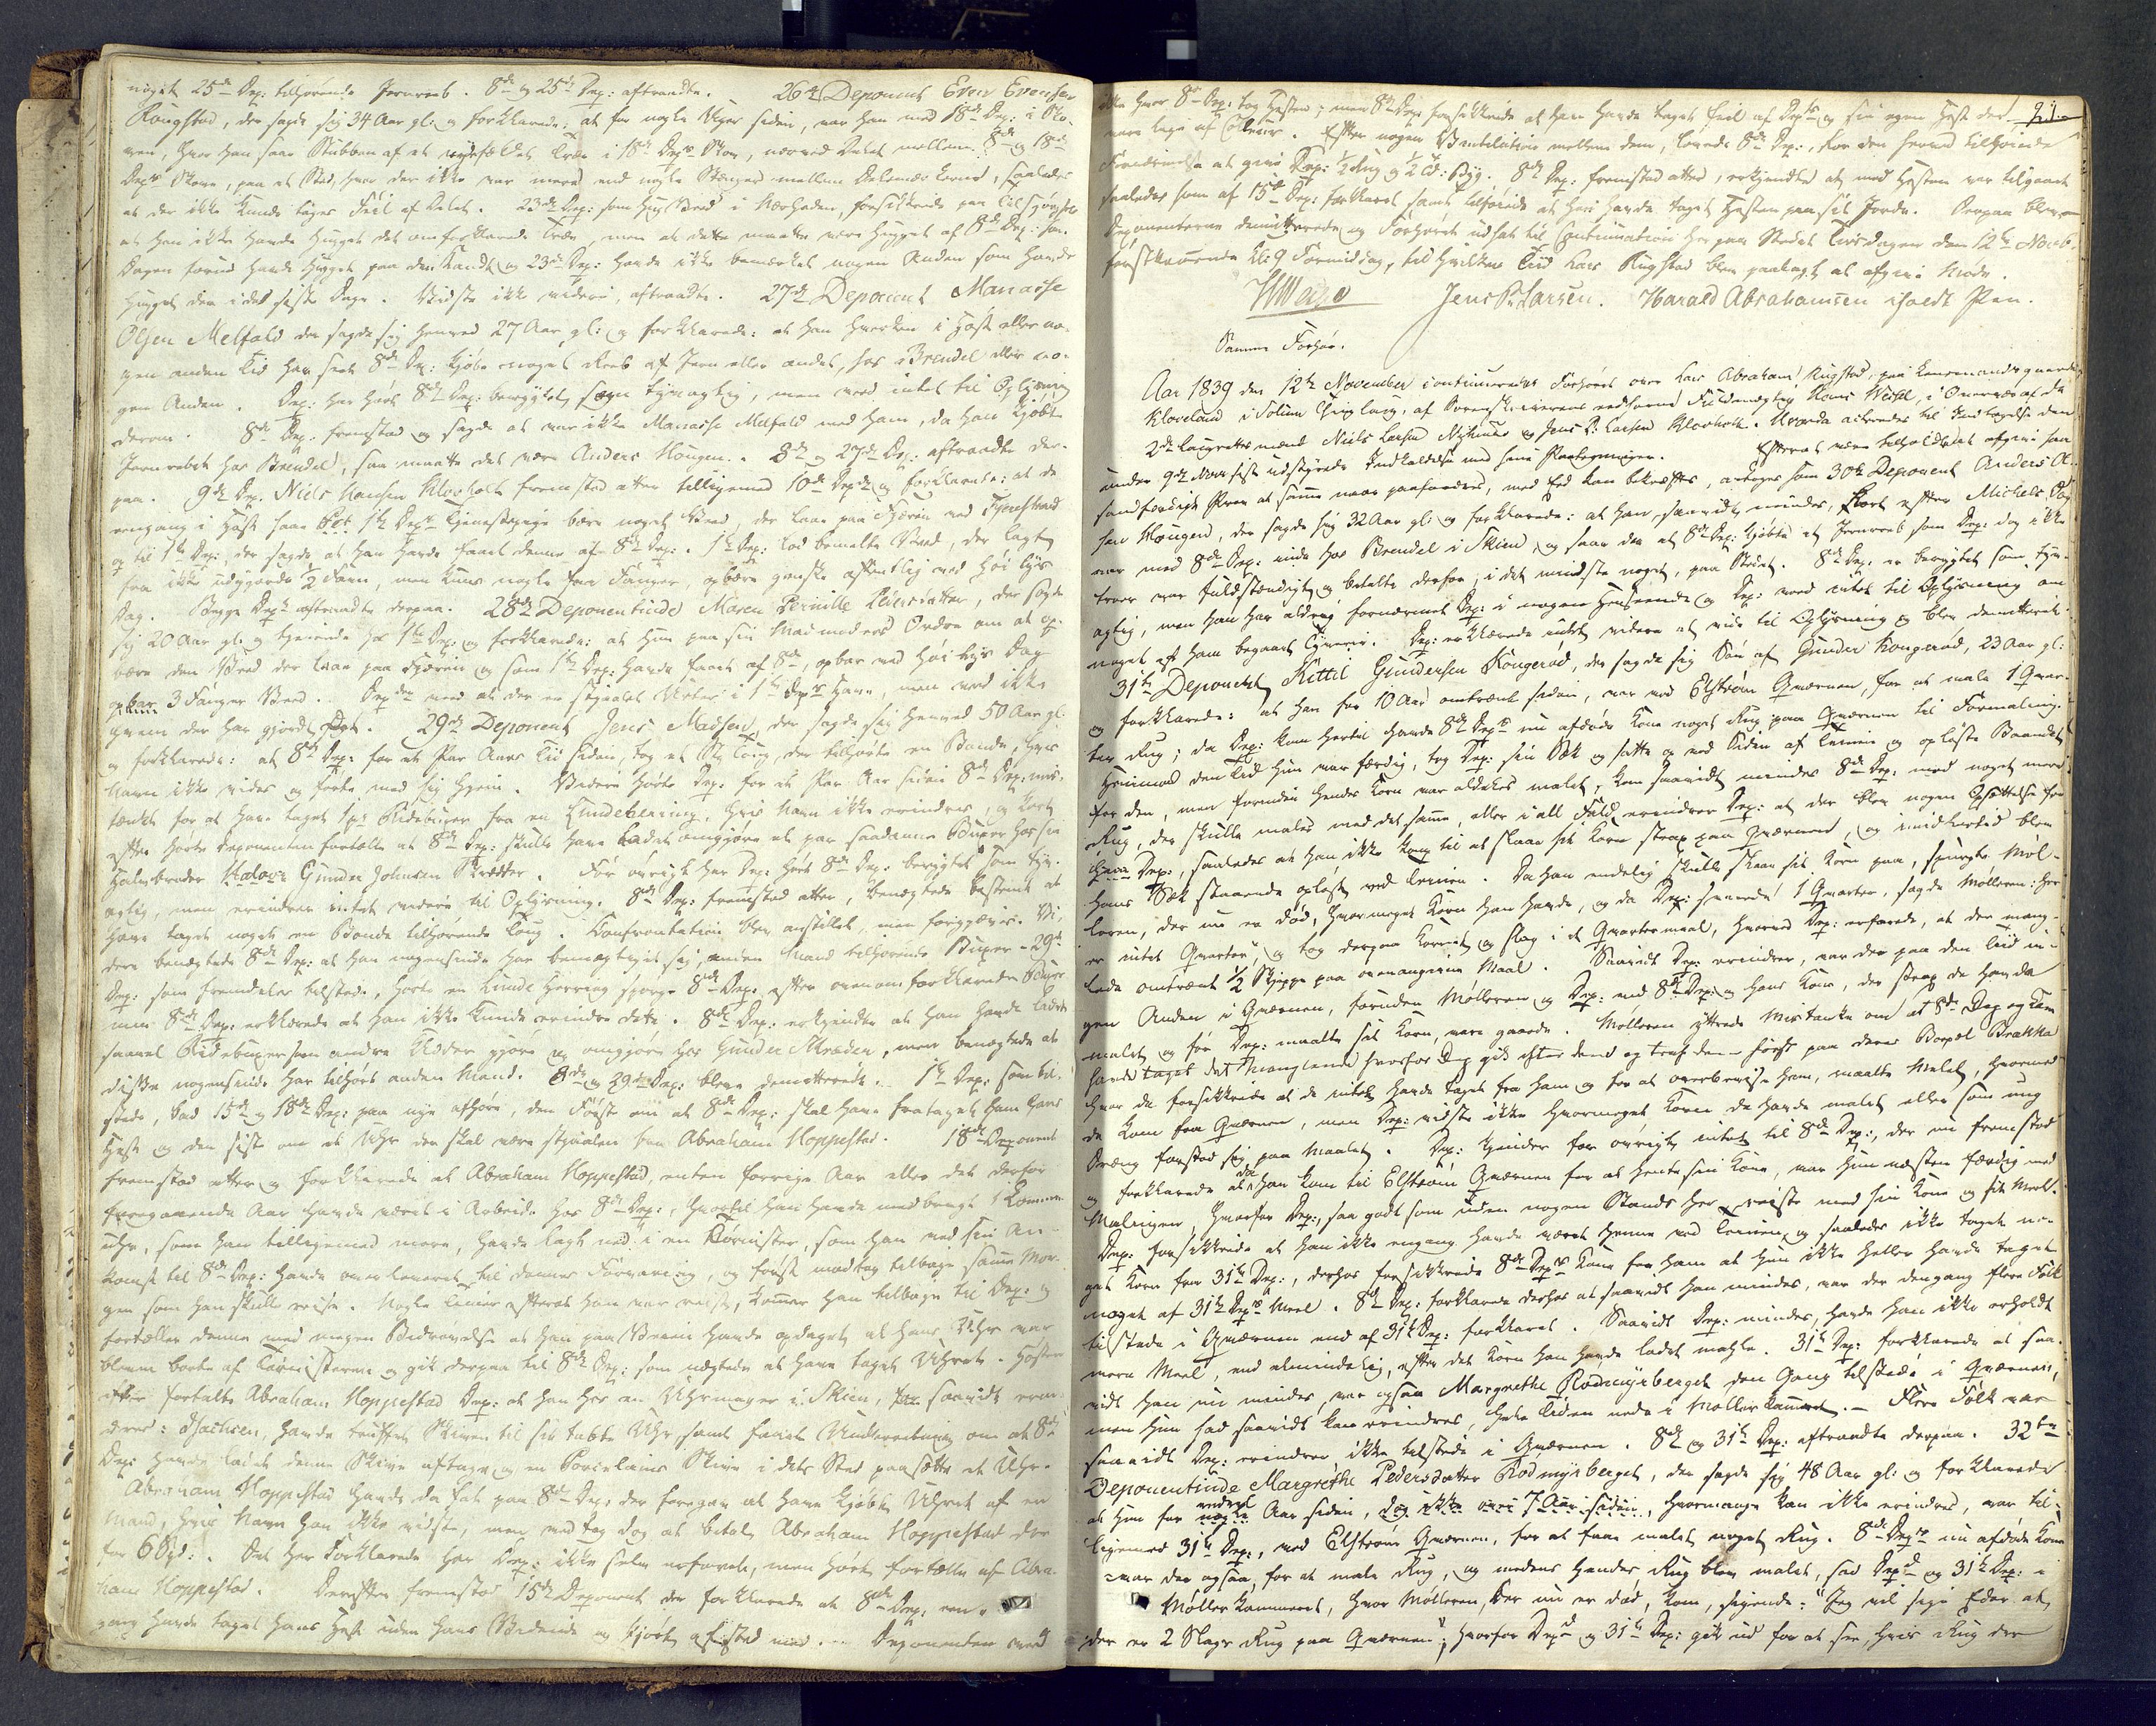 noget 25de Dep: tilhørende Jernreeb. 8de og 25de Dep: aftraadte. 26de Deponent Even Evensen
Rougstad, der sagde sig 34 Aar gl: og forklarede: at for nogle Uger siden, var han med 18de Dep: i Sko-
ven, hvor han saae Stubben af et nysfældet Træe i 18de Dep: Skov, nærved Delet mellem 8de og 18de
Dep: Skove, paa et Sted, hvor der ikke var mere end nogle Stænger mellem Delemærkerne, saaledes
at der ikke kunde tages Feil af Delet. 23de Dep: som hug Brend i Nærheden, forsikkrede paa Tilspørgsel
at han ikke havde hugget det omforklarede Træe, men at dette maatte være hugget af 8de Dep: som
Dagen forud havde hugget paa den Kandt og 23de Dep: havde ikke bemærket nogen Anden som havde
hugget der i det sidste Dage. Vidste ikke videre, aftraadte. 27de Deponent Manasse
Olsen Melfald der sagde sig henved 27 Aar gl: og forklarede: at han hverken i Høst eller no-
gen anden Tid har seet 8de Dep: kjøbe noget Reeb af Jern eller andet, hos Brendel eller no-
gen Anden. Dep: har hørt 8de Dep: berygtet som tyvagtig, men veed intet til Oplysning
derom. 8de Dep: fremstod og sagde at var ikke Manasse Melfald med ham, da han kjøbte
Jernrebet hos Brendel, saa maatte det være Anders Hougen. 8de og 27de Dep: aftraadte der-
paa. 9de Dep: Niels Hansen Klovholt fremstod atter tilligemed 10de Dep: og forklarede: at de
engang i Høst saae 1te Dep: Tjenestepige bære noget Brend, der laae paa Fjæren ved Fjærestrand
op til 1te Dep: der sagde at han havde faaet denne af 8de Dep: 1te Dep: lod bemeldte Brend, der lagtes
fra ikke udgjorde ½ Favn, men kuns nogle faae Fange, opbære ganske offentlig ved høi lys
Dag. Begge Dep: aftraadte derpaa. 28de Deponentinde Maren Pernille Peiersdatter, der sagde
sig 20 Aar gl: og tjenende hos 1te Dep: og forklarede: at hun paa sin Madmoders Ordre om at op-
bære den Brend der laae paa Fjæren og som 1te Dep: havde faaet af 8de, opbar ved høi lys Dag
3 Fange Brend. Dep: veed at der er stjaalet i 1te Dep: Have, men veed ikke
hvem der har gjordt Det. 29de Deponent Jens Madsen, der sagde sig henved 50 Aar gl:
og forklarede: at 8de Dep: for et Par Aars Tid siden, tog et Stk: Toug, der tilhørte en Bonde, hvis
Navn ikke vides og førte med sig hjem. Videre hørte Dep: for et Par Aar siden 8de Dep: mis-
tænkt for at have taget 1 pr Ridebuxer fra en Lindeherring, hvis Navn ikke erindres, og kort
efter hørte Deponenten fortælle at 8de Dep: skulle have ladet omgjøre et par saadanne Buxer hos sin
Halvbroder Gunder Johnsen Skredder. For øvrigt har Dep: hørt 8de Dep: berygtet som tyv-
agtig, men erindrer intet mere til Oplysning. 8de Dep: fremstod atter, benægtede bestemt at
have taget noget en Bonde tilhørende Toug. Konfrontation blev anstillet, men forgjæves. Vi-
dere benægtede 8de Dep: at han nogensinde har bemægtiget sig anden Mand tilhørende Buxer. 29de
Dep: som fremdeles tilstede, hørte en Linde Herring spørge 8de Dep: efter ovenomforklarede Buxer
men 8de Dep: erklærede at han ikke kunde erindre dette. 8de Dep: erkjendte at han havde ladet
saavel Ridebuxer som andre Klæder gjøre og omgjøre hos Gunder Skredder, men benægtede at
disse nogensinde har tilhørt anden Mand. 8de og 29de Dep: bleve demitterede. 1te Dep: som til-
stede, bad 15de og 18de Dep: paa nye afhøre, den Første om at 8de Dep: skal have frataget ham hans
Hest og den siste om et Uhr der skal være stjaalen fra Abraham Hoppestad. 18de Deponent
fremstod atter og forklarede at Abraham Hoppestad, enten forrige Aar eller det derfor
foregaaende Aar havde været i Arbeide hos 8de Dep:, hvortil han havde medbragt 1 Lomme-
uhr, som han tilligemed mere, havde lagt ned i en Tornister, som han ved sin An-
komst til 8de Dep: havde overleveret til dennes Forvaring, og først modtog tilbage samme Mor-
gen som han skulle reise. Nogle Timer efterat han var reist, kommer han tilbage til Dep: og
fortæller denne med megen Bedrøvelse at han paa Veien havde opdaget at hans Uhr var
bleven borte af Tornisteren og gik derpaa til 8de Dep: som nægtede at have taget Uhret. Høsten
efter fortalte Abraham Hoppestad Dep: at han hos en Uhrmager i Skien, saavidt erin-
dres: Isachsen, havde truffet Skiven til sit tabte Uhr, samt faaet Underretning om at 8de
Dep: havde ladet denne Skive aftage og en Porcelains Skive i dets Sted paasætte et Uhr.
Abraham Hoppestad havde da sat paa 8de Dep: der foregav at have kjøbt Uhret af en
Mand, hvis Navn han ikke vidste, men vedtog dog at betale Abraham Hoppestad der-
for 6 Spd:. Det her Forklarede har Dep: ikke selv erfaret, men hørt fortælle af Abra-
ham Hoppestad. Derefter fremstod 15de Deponent der forklarede at 8de Dep: een-
gang havde taget hans Hest uden hans Vidende og kjørt afsted med. Deponenten veed
ikke hvor 8de Dep: tog Hesten; men 8de Dep: forsikkrede at han havde taget feil af Dep: og sin egen Hest der
vare lige af Couleur. Efter nogen Ventilation mellem dem, lovede 8de Dep:, for den herved tilføiede
Fornærmelse at give Dep: ½ Rug og ½ Td: Byg. 8de Dep: fremstod atter, erkjendte at med Hesten var tilgaaet
saaledes som af 15de Dep: forklaret samt tilføiede at have havde taget Hesten paa sit Jorde. Derpaa bleve
Deponenterne demitterede og Forhøret udsat til Continuation her paa Stedet Tirsdagen den 12te Novb:
førstkommende Kl: 9 Formiddag, til hvilken Tid Lars Rugstad blev paalagt at afgive Møde.
HWeise Jens P: Larsen. Harald Abrahamsen iholdt Pen.
Samme Forhør.
Aar 1839 den 12te November continueredes Forhøret over Lars Abrahams: Rugstad, paa Lensmandsgaarden
Kloveland i Solum Thinglaug, af Sorenskriverens edsorne Fuldmægtig Hans Weise, i Overvær af de
2de Laugrettesmænd Niels Larsen og Jens P: Larsen Klovholt. Hvorda acterede til Indtagelse den
under 9de Novbr: sidst udstyrede Indkaldelse med sine Paategninger. Efterat være tilholdt at afgive saa
sandfærdigt Prov at samme naar paafordres, med Eed kan bekræftes, aarges som 30te Deponent Anders Ol-
sen Hougen, der sagde sig 32 Aar gl: og forklarede: at han, saavidt mindes, kort efter Michels Dag
var med 8de Dep: inde hos Brendel i Skien, og saae der at 8de Dep: kjøbte et Jernreeb som Dep: dog ikke
troer var fuldstændigt og betalte derfor, i det mindste noget, paa Stedet. 8de Dep: er berygtet som tyv-
agtig, men han har aldrig fornærmet Dep: i nogen Henseende og Dep: veed intet til Oplysning om
noget af ham begaaet Tyveri. Dep: erklærede intet videre at vide til Oplysning og blev demitteret.
31te Deponent Kittil Gundersen Kongerød, der sagde sig Søn af Gunder Kongerød, 23 Aar gl:
og forklarede: at han for 10 Aar omtrent siden, var ved Elstrøm Qværnen, for at male 1 Qvar-
ter Rug; da Dep: kom hertil havde 8de Dep: nu afdøde Kone noget Rug paa Qværnen til Formaling.
Henimod den Tid hun var færdig, tog Dep: sin Sæk og satte op ved Siden af Teinen og opløste Baandet
for den, men forinden hendes Korn var aldeles malet, kom saavidt mindes 8de Dep: med noget mere
Rug, der skulle males med det samme, eller i alt Fald erindrer Dep: at der blev nogen Opsættelse for
Dep:, saaledes at han ikke kom til at slaae sit Korn strax paa Qværnen, og imidlertid blev
hans Sæk staaende opløst ved Teinen. Da han endelig skulle slaae sit Korn paa, spurgte Møl-
leren, der nu er død, hvormeget Korn han havde, og da Dep: svarede 1 Qvarter, sagde Mølleren: her
er intet Qvarter, og tog derpaa Kornet og slog i et Qvartermaal, hvorved Dep: erfarede, at der mang-
lede omtrent ½ Skjeppe paa ovenangivne Maal. Saavidt Dep: erindrer, var der paa den Tid in-
gen Anden i Qværnen, foruden Mølleren og Dep: end 8de Dep: og hans Kone, der strax de havde
malet og før Dep: maalte sit Korn, vare gaaede. Mølleren yttrede Mistanke om at 8de Dep: og Kone
havde taget det Manglende hvorfor Dep gik efter dem og traf dem først paa deres Borpæl Brække
hvor de forsikkrede at de intet havde taget fra ham og for at overbevise ham, maalte Melet, hvormed
de kom fra Qværnen, men Dep: vidste ikke hvormeget Korn de havde malet eller som ung
Dreng forstod sig paa Maalet. Dep: kjender for øvrigt intet til 8de Dep:, der nu fremstod
og forklarede at da han kom til Elstrøm Qværnen for at hente sin Kone, var hun næsten færdig med
Malingen, hvorfor Dep:, saa godt som uden nogen Stands her reiste med sin Kone og sit Meel.
Dep: forsikkrede at han ikke engang havde været henne ved Teinen, og saaledes ikke taget no-
get Korn fra 31te Dep:, derhos forsikkrede 8de Dep: Kone for ham at hun ikke heller havde taget
noget af 31te Dep: Meel. 8de Dep: forklarede derhos at saavidt han mindes, var der dengang flere Folk
tilstede i Qværnen end af 31te Dep: forklaret. Saavidt Dep: mindes, havde han ikke erholdt
mere Meel, end almindelig, efter det Korn han havde ladet mahle. 31te Dep: forklarede at saa-
vidt han nu mindes, var ogsaa Margrethe Rodmyrberget den Gang tilstede i Qværnen,
men hun sad saavidt kan erindres, hele Tiden nede i Møllerkammeret. – Flere Folk var
saavidt Dep: erindrer ikke tilstede i Qværnen. 8de og 31te Dep: aftraadte derpaa. 32te
Deponentinde Margrethe Pedersdatter Rodmyrberget, der sagde sig 48 Aar gl: og forklarede
at hun for endeel Aar siden, hvormange kan ikke erindres, var til-
ligemed 31te Dep:, ved Elstrøm Qværnen, for at faae malet noget Rug. 8de Dep: nu afdøde Kone
var der ogsaa, for at male Rug, og medens hendes Rug blev malet, sad Dep: og 31te Dep: i
Møllerkammeret, hvor Mølleren, der nu er død, kom, sigende: "Jeg vil sige Eder at
der er 2 Slags Rug paa Qværnen"; hvorfor Dep: og 31te Dep: gik ud for at see hvis Rug der